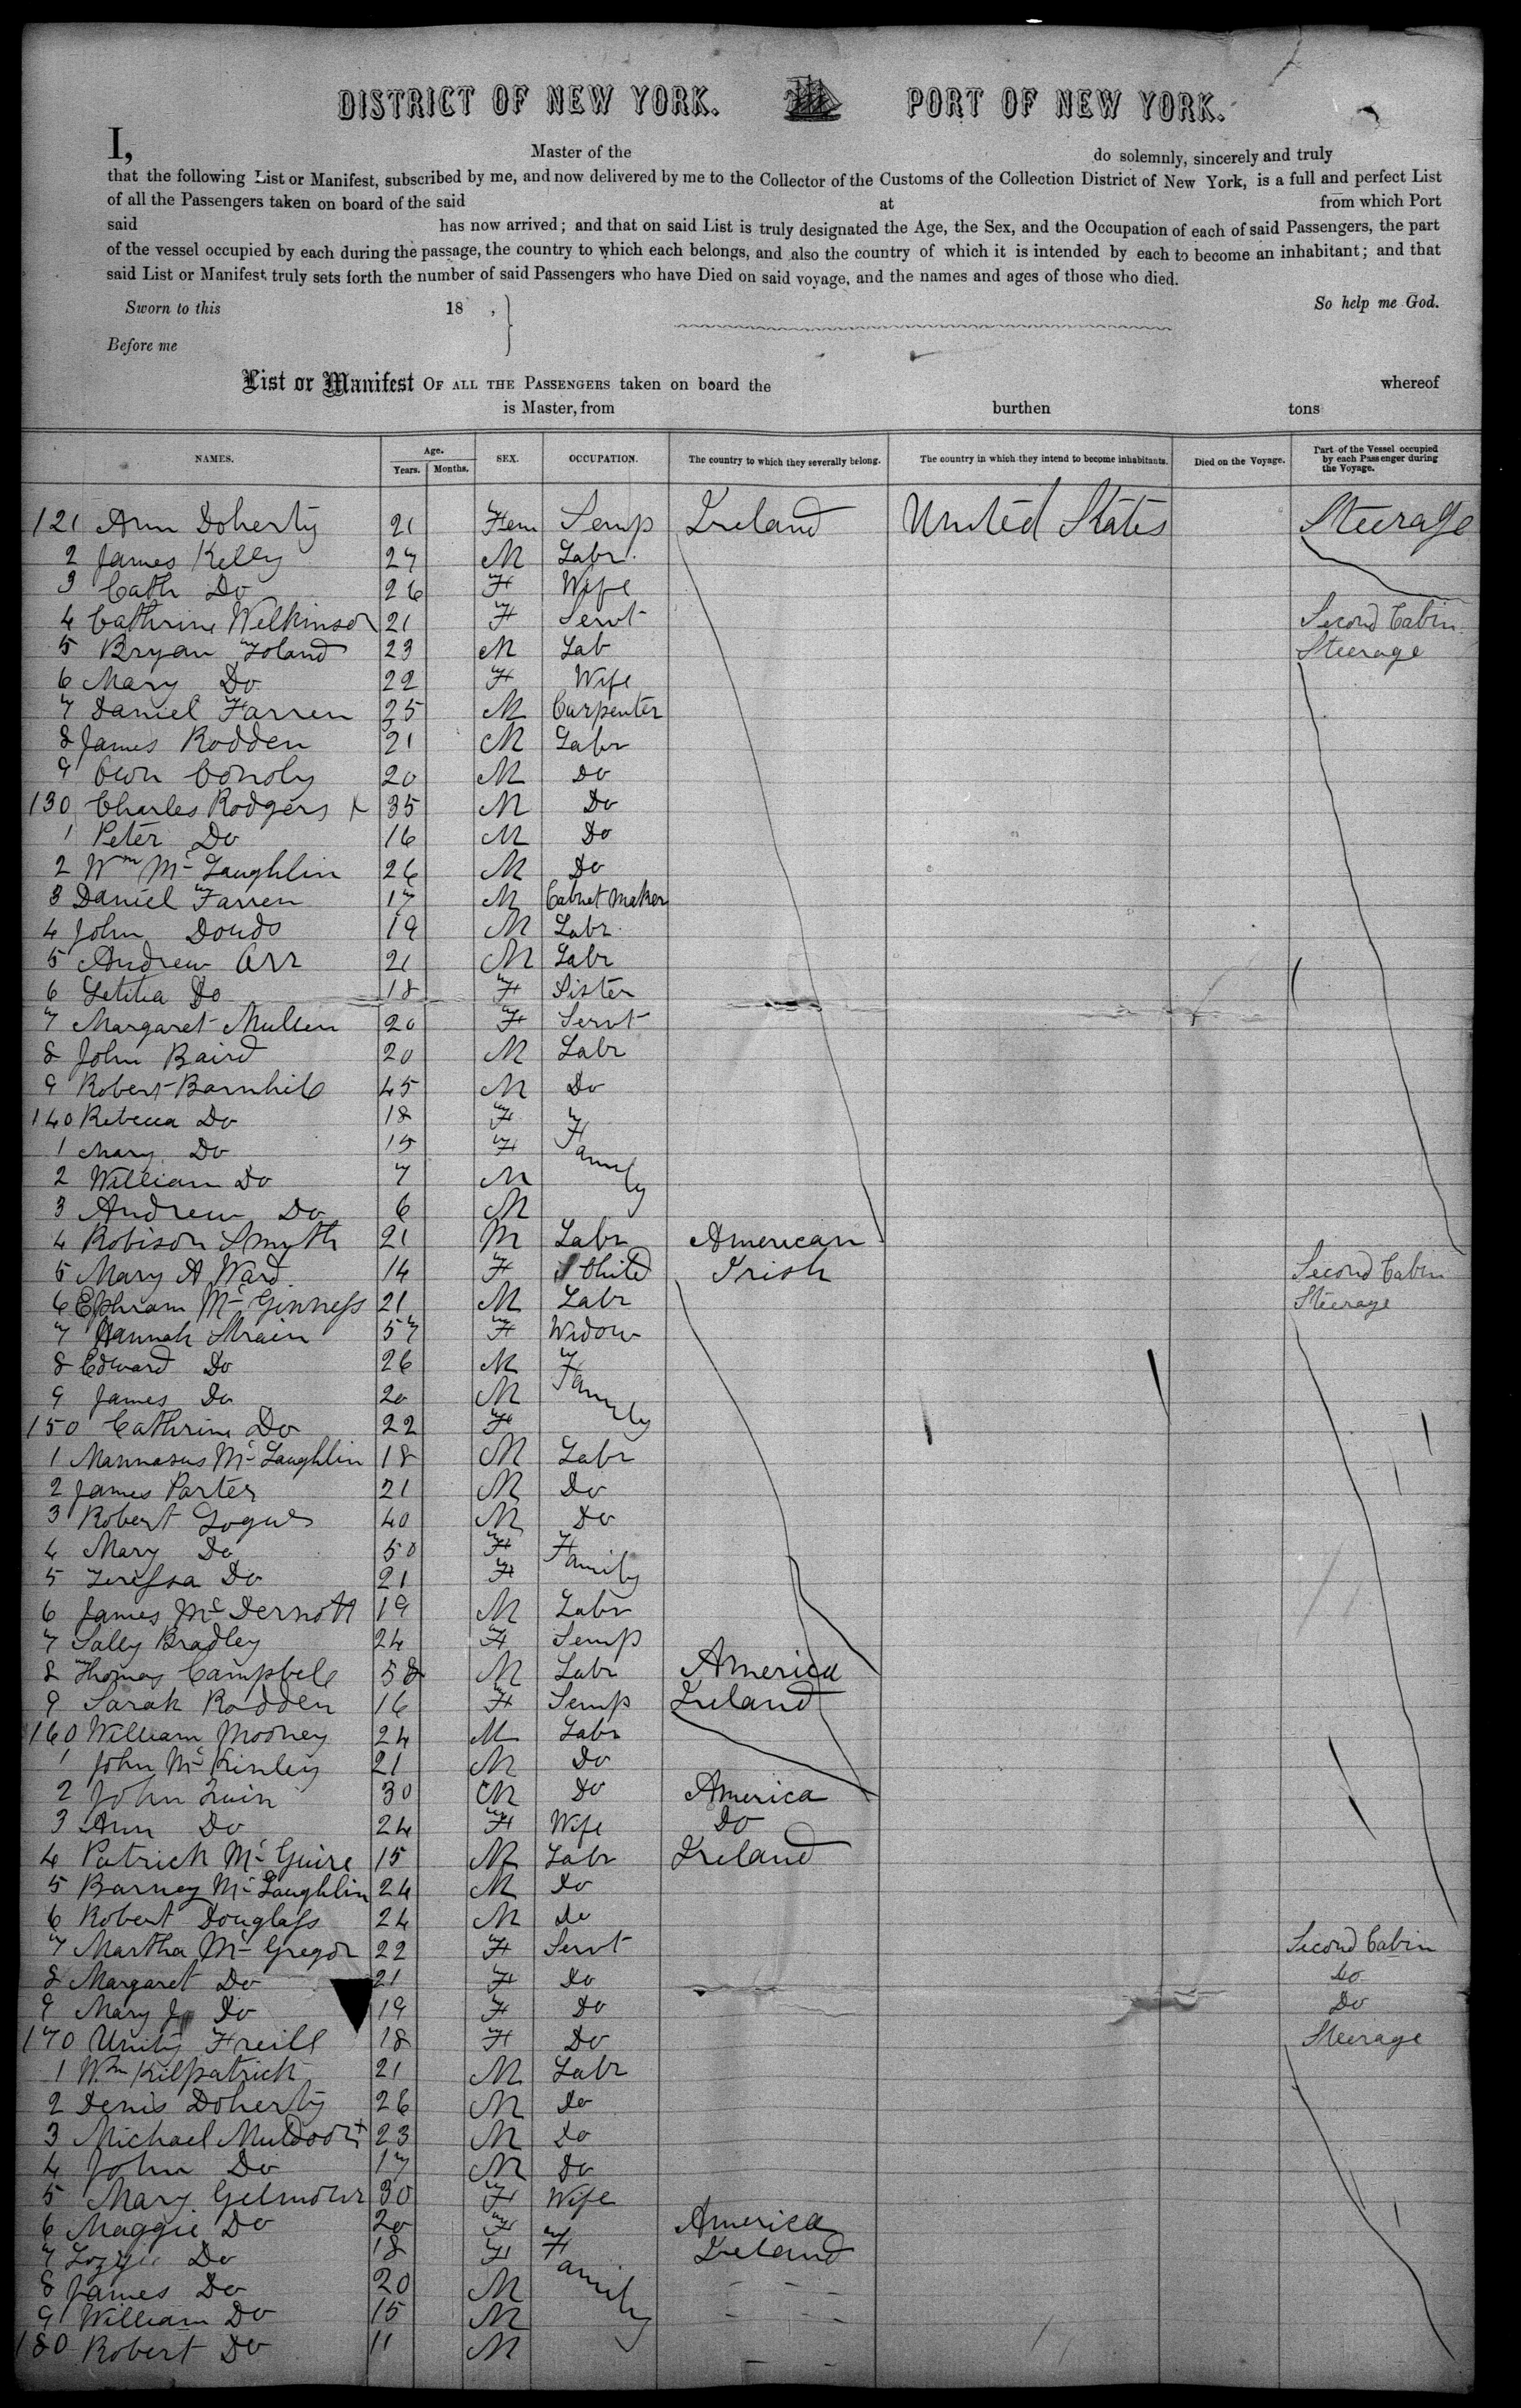 DISTRICT OF NEW YORK. PORT OF NEW YORK.
I, Master of the do solemnly, sincerely and truly
that the following List or Manifest, subscribed by me, and now delivered by me to the Collector of the Customs of the Collection District of New York, is a full and perfect List
of all the Passengers taken on board of the said at from which Port
said has now arrived; and that on said List is truly designated the Age, the Sex, and the Occupation of each of said Passengers, the part
of the vessel occupied by each during the passage, the country to which each belongs, and also the country of which it is intended by each to become an inhabitant; and that
said List or Manifest truly sets forth the number of said Passengers who have Died on said voyage, and the names and ages of those who died.
Sworn to this 18 , So help me God.
Before me
List or Manifest OF ALL THE PASSENGERS taken on board the whereof
is Master, from burthen tons
NAMES. Age. Years. Months. SEX. OCCUPATION. The country to which they severally belong. The country in which they intend to become inhabitants. Died on the Voyage. Part of the Vessel occupied by each Passenger during the Voyage.
121 Ann Doherty 21 Fem Semp Ireland United States Steerage
2 James Kelly 27 M Labr.
3 Cath Do 26 F Wife
4 Cathrine Wilkinson 21 F Servt Second Cabin
5 Bryan Toland 23 M Lab Steerage
6 Mary Do 22 F Wife
7 Daniel Farren 25 M Carpenter
8 James Rodden 21 M Labr
9 Own Conoly 20 M Do
130 Charles Rodgers x 35 M Do
1 Peter Do 16 M Do
2 Wm McLaughlin 26 M Do
3 Daniel Farren 17 M Cabnet Maker
4 John Douds 19 M Labr.
5 Andrew Orr 21 M Labr
6 Letitia Do 18 F Sister
7 Margaret Mullen 20 F Servt
8 John Baird 20 M Labr
9 Robert Barnhill 45 M Do
140 Rebecca Do 18 F Family
1 Mary Do 15 F
2 William Do 7 M
3 Andrew Do 6 M
4 Robison Smyth 21 M Labr American
5 Mary A Ward 14 F Child Irish Second Cabin
6 Ephram McGinness 21 M Labr Steerage
7 Hannah Strain 57 F Widow
8 Edward Do 26 M Family
9 James Do 20 M
150 Cathrine Do 22 F
1 Mannasus McLaughlin 18 M Labr
2 James Porter 21 M Do
3 Robert Logue 40 M Do
4 Mary Do 50 F Family
5 Teressa Do 21 F
6 James McDermott 19 M Labr
7 Sally Bradley 24 F Semp
8 Thomas Campbell 58 M Labr America
9 Sarah Rodden 16 F Semp Ireland
160 William Mooney 24 M Labr
1 John McKinley 21 M Do
2 John Quin 30 M Do America
3 Ann Do 24 F Wife Do
4 Patrick McGuire 15 M Labr Ireland
5 Barney McLaughlin 24 M Do
6 Robert Douglass 24 M Do
7 Martha McGregor 22 F Servt Second Cabin
8 Margaret Do 21 F Do Do
9 Mary J Do 19 F Do Do
170 Unity Freill 18 F Do Steerage
1 Wm Kilpatrick 21 M Labr
2 Denis Doherty 26 M Do
3 Michael Muldoon x 23 M Do
4 John Do 17 M Do
5 Mary Gilmour 30 F Wife
6 Maggie Do 20 F Family America
7 Do 18 F Ireland
8 James Do 20 M
9 William Do 15 M
180 Robert Do 11 M